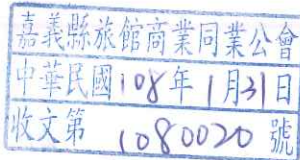 嘉義縣旅館商業同業公會
中華民國108年1月31日
收文第1080020號